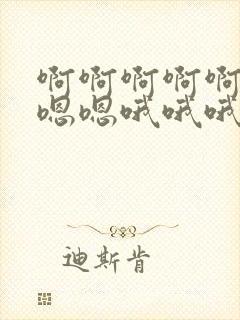 啊啊啊啊啊
嗯嗯哦哦哦
迪斯肯